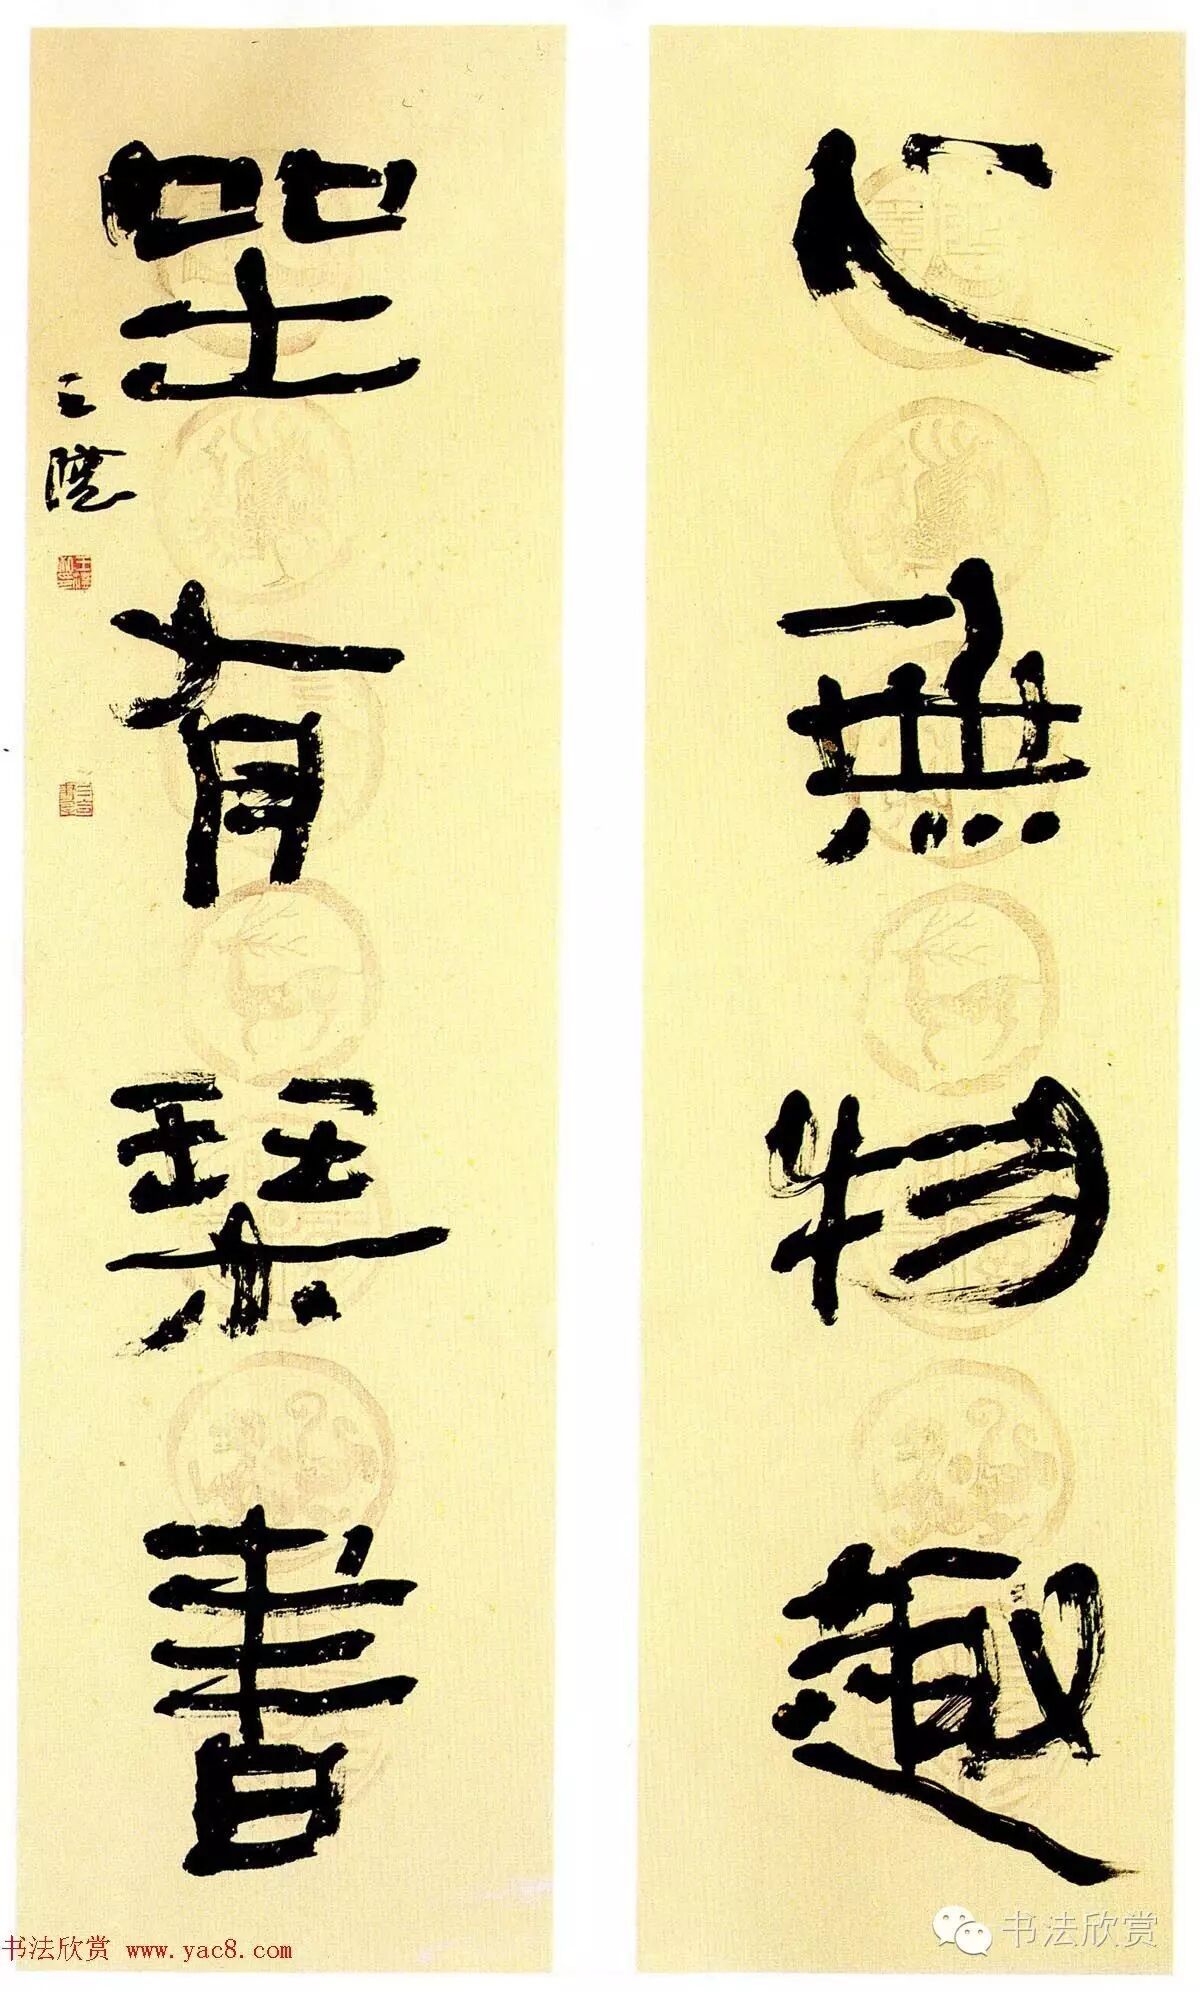 心無物趣
坐有琹書
书法欣赏 www.yac8.com
书法欣赏